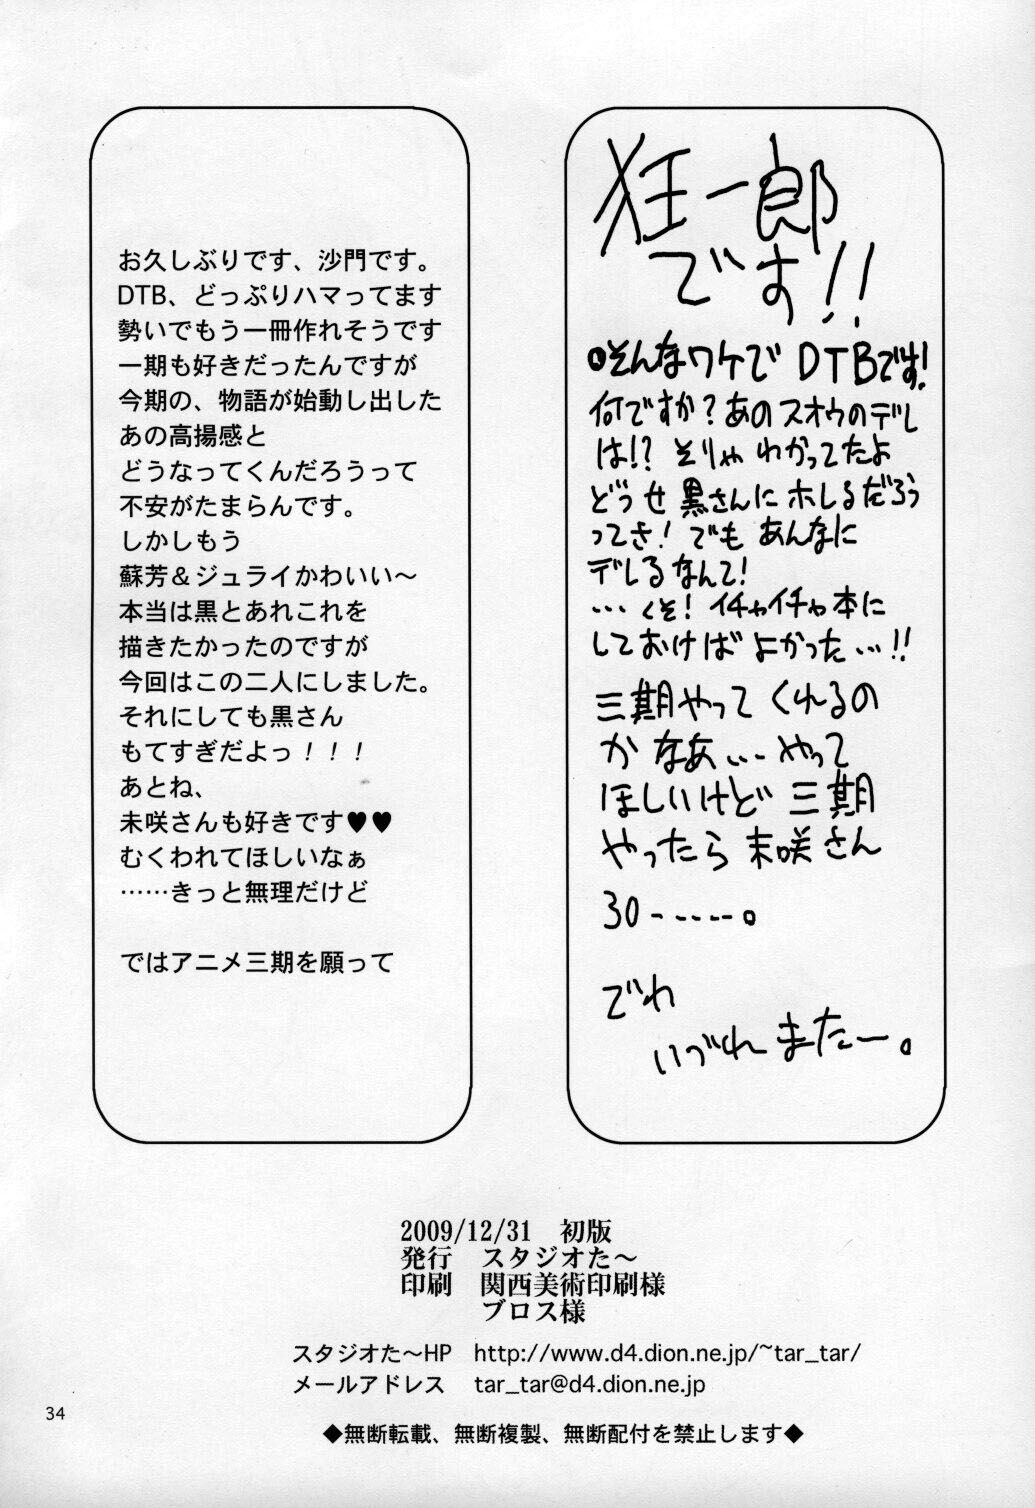 狂一郎
です!!
●そんなワケで DTBです!
何ですか?あのスオウのデレ
は!?そりゃわかってたよ
どうせ黒さんにホレるだろう
ってさ!でもあんなに
デレるなんて!
…くそ!イチャイチャ本に
しておけばよかった…!!
三期やってくれるの
かなあ…やって
ほしいけど三期
やったら未咲さん
30------。
でわ
いづれまたー。
お久しぶりです、沙門です。
DTB、どっぷりハマってます
勢いでもう一冊作れそうです
一期も好きだったんですが
今期の、物語が始動し出した
あの高揚感と
どうなってくんだろうって
不安がたまらんです。
しかしもう
蘇芳&ジュライかわいい〜
本当は黒とあれこれを
描きたかったのですが
今回はこの二人にしました。
それにしても黒さん
もてすぎだよっ!!!
あとね、
未咲さんも好きです♥♥
むくわれてほしいなぁ
……きっと無理だけど
ではアニメ三期を願って
2009/12/31 初版
発行 スタジオた〜
印刷 関西美術印刷様
ブロス様
スタジオた〜HP http://www.d4.dion.ne.jp/~tar_tar/
メールアドレス tar_tar@d4.dion.ne.jp
34
◆無断転載、無断複製、無断配付を禁止します◆